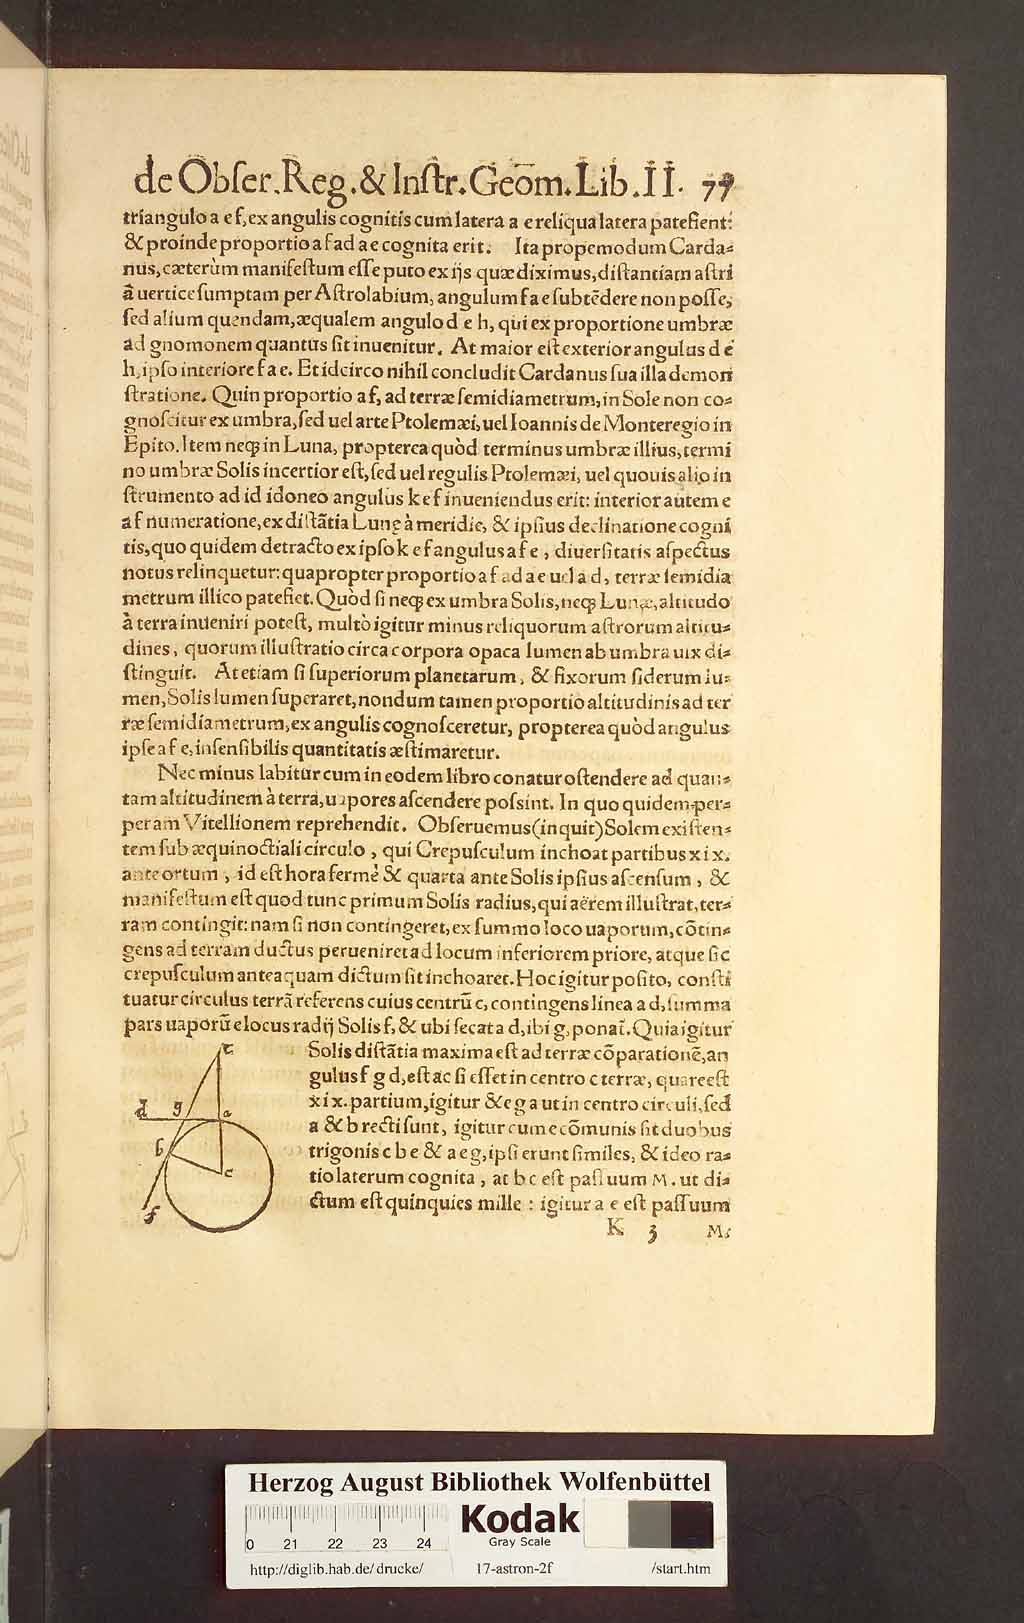 de Obſer. Reg. & Inſtr. Geom̄. Lib. II. 77
triangulo a e f, ex angulis cognitis cum latera a e reliqua latera patefient:
& proinde proportio a f ad a e cognita erit. Ita propemodum Carda-
nus, cæterùm manifeſtum eſſe puto ex ijs quæ diximus, diſtantiam aſtri
à uertice ſumptam per Aſtrolabium, angulum f a e ſubtēdere non poſſe,
ſed alium quendam, æqualem angulo d e h, qui ex proportione umbræ
ad gnomonem quantus ſit inuenitur. At maior eſt exterior angulus d e
h, ipſo interiore f a e. Et idcirco nihil concludit Cardanus ſua illa demon
ſtratione. Quin proportio a f, ad terræ ſemidiametrum, in Sole non co-
gnoſcitur ex umbra, ſed uel arte Ptolemæi, uel Ioannis de Monteregio in
Epito. Item neq; in Luna, propterea quòd terminus umbræ illius, termi
no umbræ Solis incertior eſt, ſed uel regulis Ptolemæi, uel quouis alio in
ſtrumento ad id idoneo angulus k e f inueniendus erit: interior autem e
a f numeratione, ex diſtātia Lunę à meridie, & ipſius declinatione cogni
tis, quo quidem detracto ex ipſo k e f angulus a f e, diuerſitatis aſpectus
notus relinquetur: quapropter proportio a f ad a e uel a d, terræ ſemidia
metrum illico patefiet. Quòd ſi neq; ex umbra Solis, neq; Lunæ, altitudo
à terra inueniri poteſt, multò igitur minus reliquorum aſtrorum altitu-
dines, quorum illuſtratio circa corpora opaca lumen ab umbra uix di-
ſtinguit. At etiam ſi ſuperiorum planetarum, & fixorum ſiderum lu-
men, Solis lumen ſuperaret, nondum tamen proportio altitudinis ad ter
ræ ſemidiametrum, ex angulis cognoſceretur, propterea quòd angulus
ipſe a f e, inſenſibilis quantitatis æſtimaretur.
Nec minus labitur cum in eodem libro conatur oſtendere ad quan-
tam altitudinem à terra, uapores aſcendere poſsint. In quo quidem per-
peram Vitellionem reprehendit. Obſeruemus (inquit) Solem exiſten-
tem ſub æquinoctiali circulo, qui Crepuſculum inchoat partibus x i x.
ante ortum, id eſt hora fermè & quarta ante Solis ipſius aſcenſum, &
manifeſtum eſt quod tunc primum Solis radius, qui aërem illuſtrat, ter-
ram contingit: nam ſi non contingeret, ex ſummo loco uaporum, cōtin-
gens ad terram ductus perueniret ad locum inferiorem priore, atque ſic
crepuſculum antea quam dictum ſit inchoaret. Hoc igitur poſito, conſti
tuatur circulus terrā referens cuius centrū c, contingens linea a d, ſumma
pars uaporū e locus radij Solis f, & ubi ſecat a d, ibi g, ponat̄. Quia igitur
Solis diſtātia maxima eſt ad terræ cōparationē, an
gulus f g d, eſt ac ſi eſſet in centro c terræ, quare eſt
x i x. partium, igitur & e g a ut in centro circuli, ſed
a & b recti ſunt, igitur cum e cōmunis ſit duobus
trigonis c b e & a e g, ipſi erunt ſimiles, & ideo ra-
tio laterum cognita, at b c eſt paſſuum M. ut di-
ctum eſt quinquies mille: igitur a e eſt paſſuum
e
d g a
b
c
f
K 3 M;
Herzog August Bibliothek Wolfenbüttel
0 21 22 23 24
Kodak
Gray Scale
http://diglib.hab.de/drucke/ 17-astron-2f /start.htm